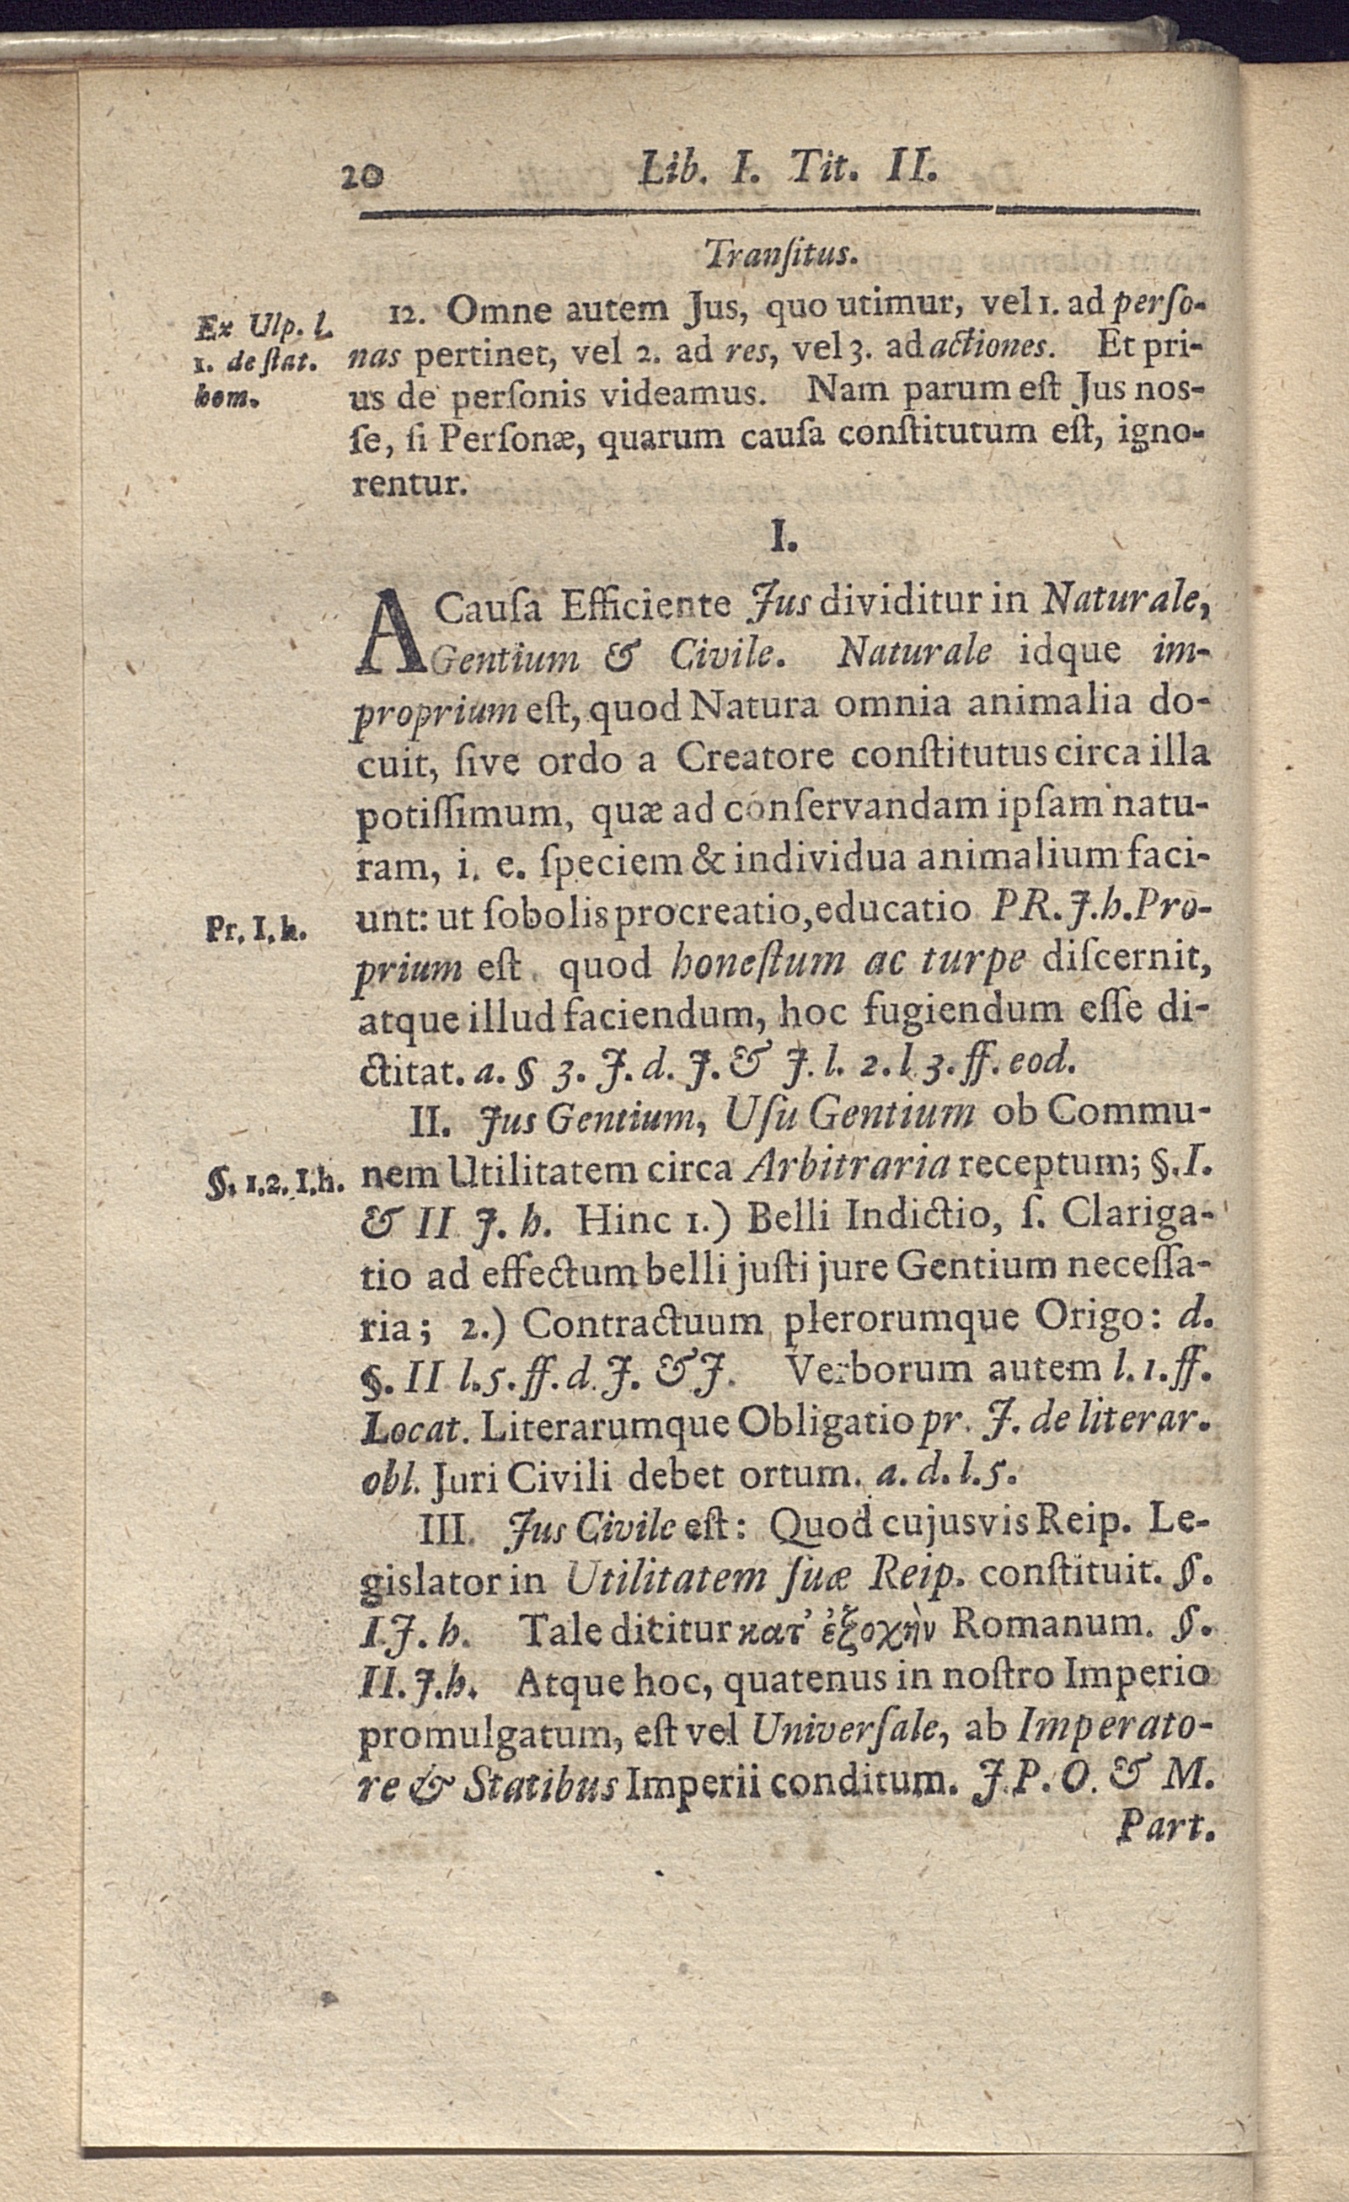 20 Lib. I. Tit. II.
Tranſitus.
Ex Ulp. l.
1. de ſtat.
hom.
12. Omne autem Jus, quo utimur, vel 1. ad perſo-
nas pertinet, vel 2. ad res, vel 3. ad actiones. Et pri-
us de perſonis videamus. Nam parum eſt Jus nos-
ſe, ſi Perſonæ, quarum cauſa conſtitutum eſt, igno-
rentur.
I.
A Cauſa Efficiente Jus dividitur in Naturale,
Gentium & Civile. Naturale idque im-
proprium eſt, quod Natura omnia animalia do-
cuit, ſive ordo a Creatore conſtitutus circa illa
potiſſimum, quæ ad conſervandam ipſam natu-
ram, i. e. ſpeciem & individua animalium faci-
Pr. I. h.
unt: ut ſobolis procreatio, educatio PR. J. h. Pro-
prium eſt quod honeſtum ac turpe diſcernit,
atque illud faciendum, hoc fugiendum eſſe di-
ctitat. a. § 3. J. d. J. & J. l. 2. l 3. ff. eod.
II. Jus Gentium, Uſu Gentium ob Commu-
§. 1.2. I.h.
nem Utilitatem circa Arbitraria receptum; §. I.
& II J. h. Hinc 1.) Belli Indictio, ſ. Clariga-
tio ad effectum belli juſti jure Gentium neceſſa-
ria; 2.) Contractuum plerorumque Origo: d.
§. II l. 5. ff. d. J. & J. Verborum autem l. 1. ff.
Locat. Literarumque Obligatio pr. J. de literar.
obl. Juri Civili debet ortum. a. d. l. 5.
III. Jus Civile eſt: Quod cujusvis Reip. Le-
gislator in Utilitatem ſuæ Reip. conſtituit. §.
I. J. h. Tale dicitur κατ' ἐξοχὴν Romanum. §.
II. J. h. Atque hoc, quatenus in noſtro Imperio
promulgatum, eſt vel Univerſale, ab Imperato-
re & Statibus Imperii conditum. J. P. O. & M.
Part.